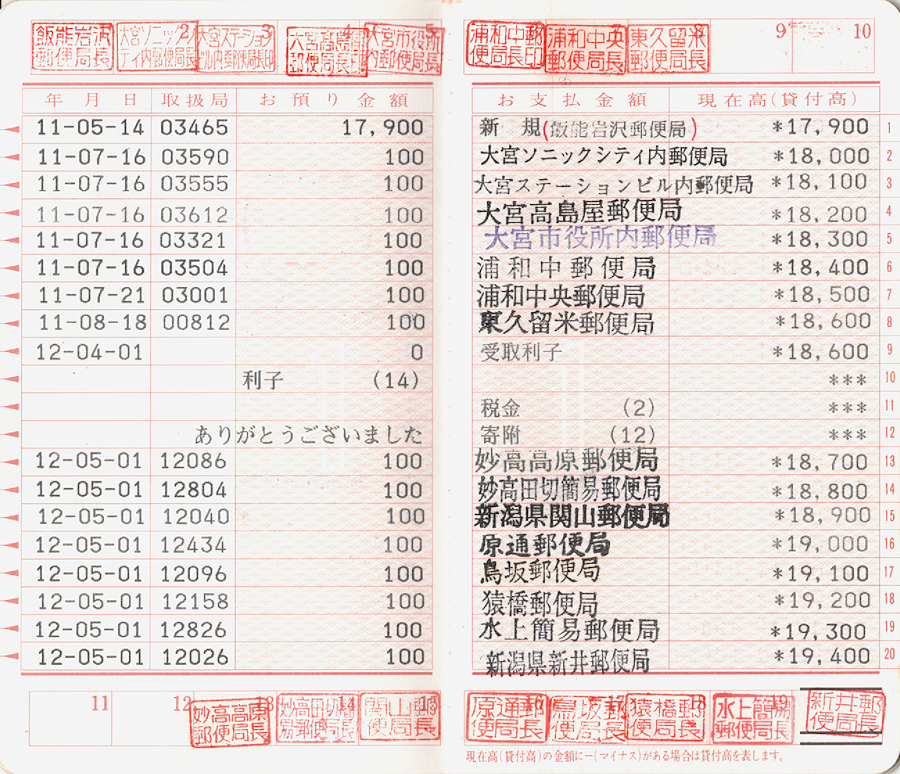 飯能岩沢郵便局長
大宮ソニックシティ内郵便局長
大宮ステーションビル内郵便局長印
大宮高島屋郵便局長印
大宮市役所 郵便局長
浦和中郵便局長印
浦和中央郵便局長
東久留米郵便局長
1 2 3 4 5 8 9 10
年月日 取扱局 お預り金額 お支払金額 現在高(貸付高)
11-05-14 03465 17,900 新規(飯能岩沢郵便局) *17,900 1
11-07-16 03590 100 大宮ソニックシティ内郵便局 *18,000 2
11-07-16 03555 100 大宮ステーションビル内郵便局 *18,100 3
11-07-16 03612 100 大宮高島屋郵便局 *18,200 4
11-07-16 03321 100 大宮市役所内郵便局 *18,300 5
11-07-16 03504 100 浦和中郵便局 *18,400 6
11-07-21 03001 100 浦和中央郵便局 *18,500 7
11-08-18 00812 100 東久留米郵便局 *18,600 8
12-04-01 0 受取利子 *18,600 9
利子 (14) *** 10
税金 (2) *** 11
ありがとうございました 寄附 (12) *** 12
12-05-01 12086 100 妙高高原郵便局 *18,700 13
12-05-01 12804 100 妙高田切簡易郵便局 *18,800 14
12-05-01 12040 100 新潟県関山郵便局 *18,900 15
12-05-01 12434 100 原通郵便局 *19,000 16
12-05-01 12096 100 鳥坂郵便局 *19,100 17
12-05-01 12158 100 猿橋郵便局 *19,200 18
12-05-01 12826 100 水上簡易郵便局 *19,300 19
12-05-01 12026 100 新潟県新井郵便局 *19,400 20
11 12 13 14 15 19
妙高高原郵便局長
妙高田切簡易郵便局長
関山郵便局長
原通郵便局長
鳥坂郵便局長
猿橋郵便局長
水上簡易郵便局長
新井郵便局長
現在高(貸付高)の金額に−(マイナス)がある場合は貸付高を表します。